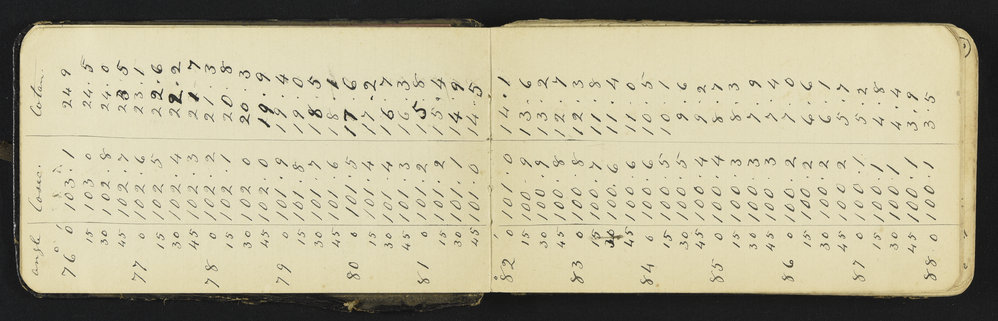 angle Cosec. Cotan.
76° 0' 103.1 24.9
15 103.0 24.5
30 102.8 24.0
45 102.7 23.5
77 0 102.6 23.1
15 102.5 22.6
30 102.4 22.2
45 102.3 21.7
78 0 102.2 21.3
15 102.1 20.8
30 102.0 20.3
45 102.0 19.9
79 0 101.9 19.4
15 101.8 19.0
30 101.7 18.5
45 101.6 18.1
80 0 101.5 17.6
15 101.4 17.2
30 101.4 16.7
45 101.3 16.3
81 0 101.2 15.8
15 101.2 15.4
30 101.1 14.9
45 101.0 14.5
82° 0 101.0 14.1
15 100.9 13.6
30 100.9 13.2
45 100.8 12.7
83 0 100.8 12.3
15 100.7 11.8
30 100.6 11.4
45 100.6 11.0
84 0 100.6 10.5
15 100.5 10.1
30 100.5 9.6
45 100.4 9.2
85 0 100.4 8.7
15 100.3 8.3
30 100.3 7.9
45 100.3 7.4
86 0 100.2 7.0
15 100.2 6.6
30 100.2 6.1
45 100.2 5.7
87 0 100.1 5.2
15 100.1 4.8
30 100.1 4.4
45 100.1 3.9
88 0 100.1 3.5